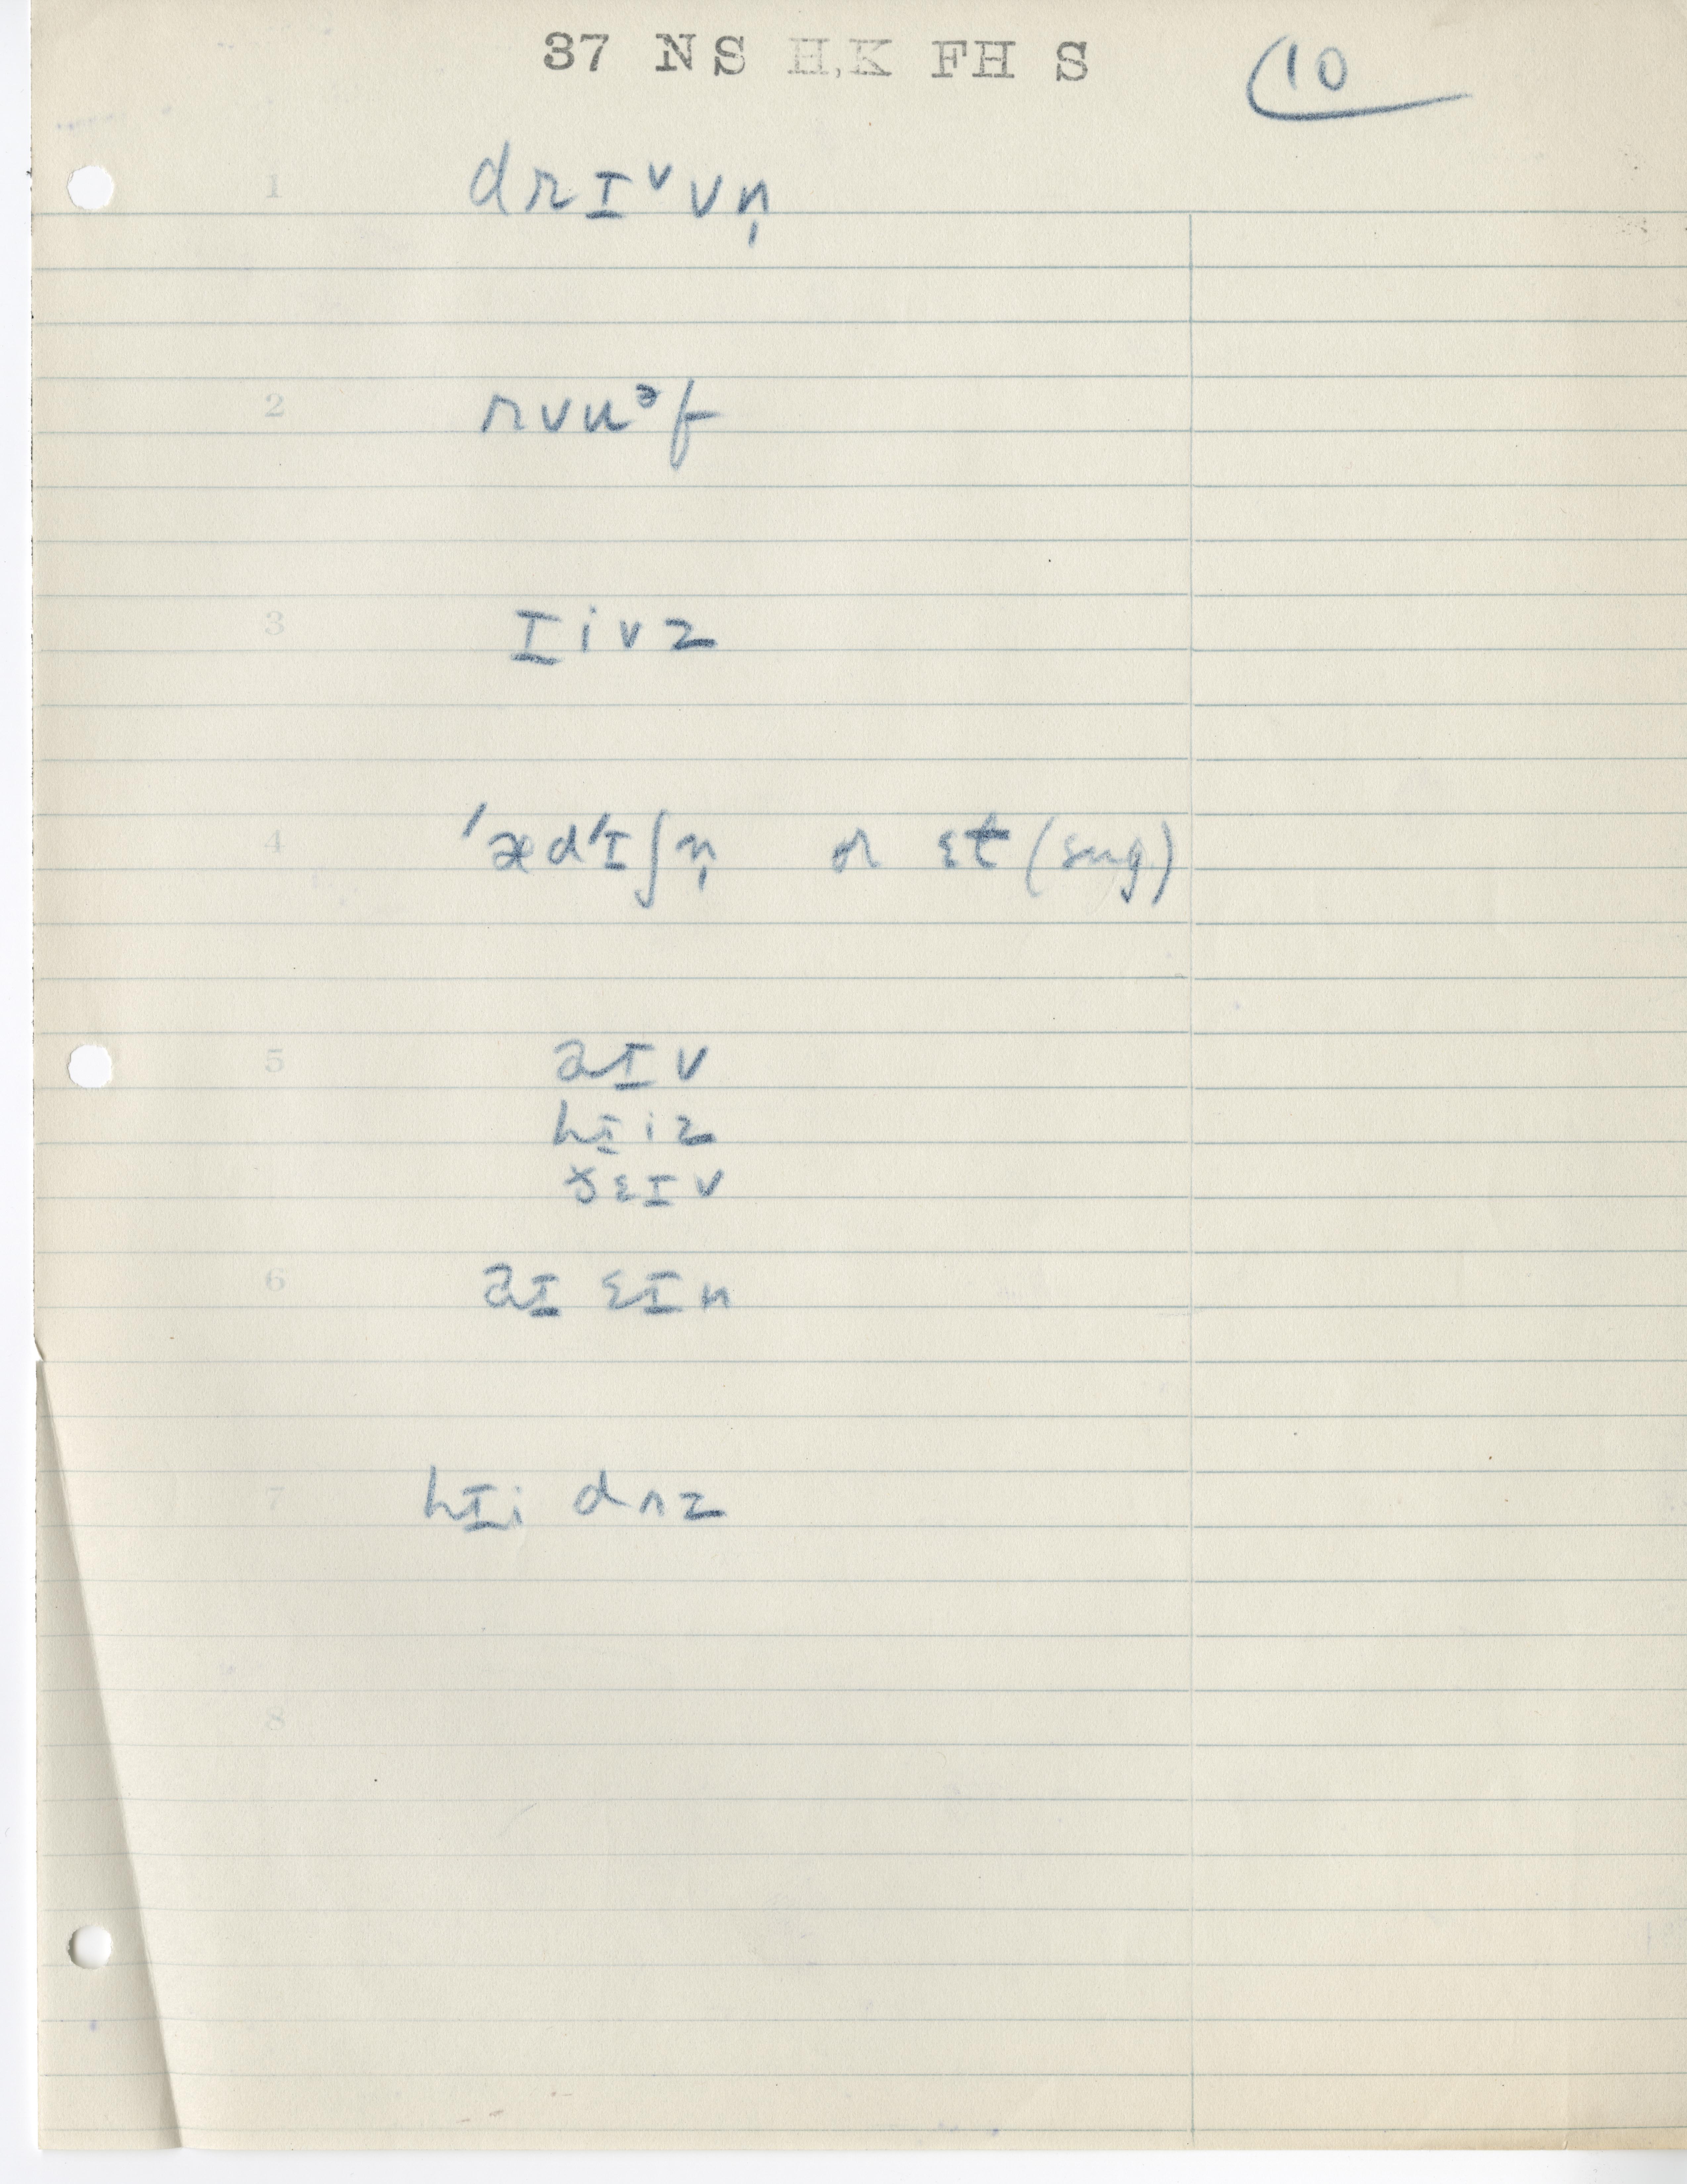 37 NS H,K FH S
10
1 drɪᵛvn̩
2 rvuᵊf
3 ɪivz
4 'æd'ɪʃn̩ or ɛt (sug.)
5 aɪv
hɪiz
ðɛɪv
6 aɪ ɛɪn
7 hɪi drz
8